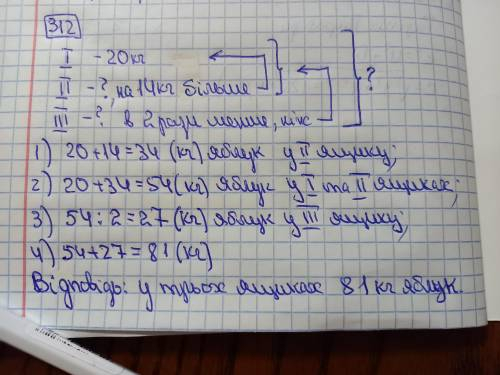 312
I - 20кг
II - ?, на 14кг більше
III - ? в 2 рази менше, ніж
?
1) 20+14=34 (кг) яблук у II ящику;
2) 20+34=54 (кг) яблук у I та II ящиках;
3) 54:2=27 (кг) яблук у III ящику;
4) 54+27=81 (кг)
Відповідь: у трьох ящиках 81 кг яблук.